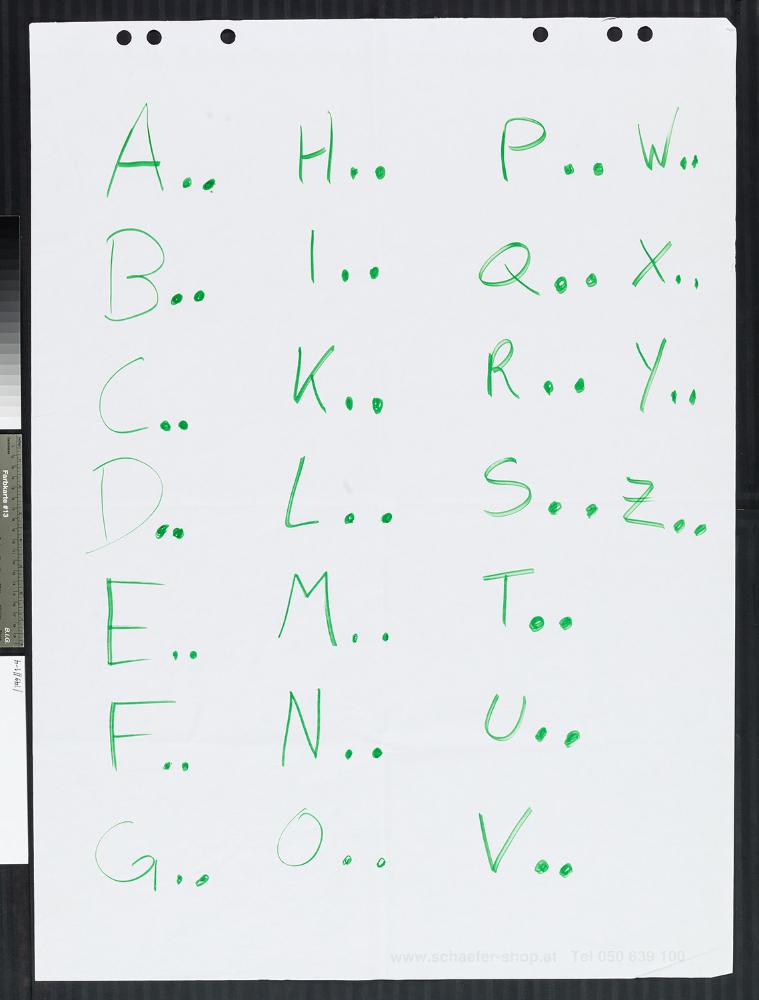 A.. H.. P.. W..
B.. I.. Q.. X..
C.. K.. R.. Y..
D.. L.. S.. Z..
E.. M.. T..
F.. N.. U..
G.. O.. V..
www.schaefer-shop.at Tel 050 639 100
Farbkarte #13
B.I.G.